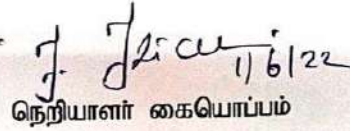 1/6/22
நெறியாளர் கையொப்பம்